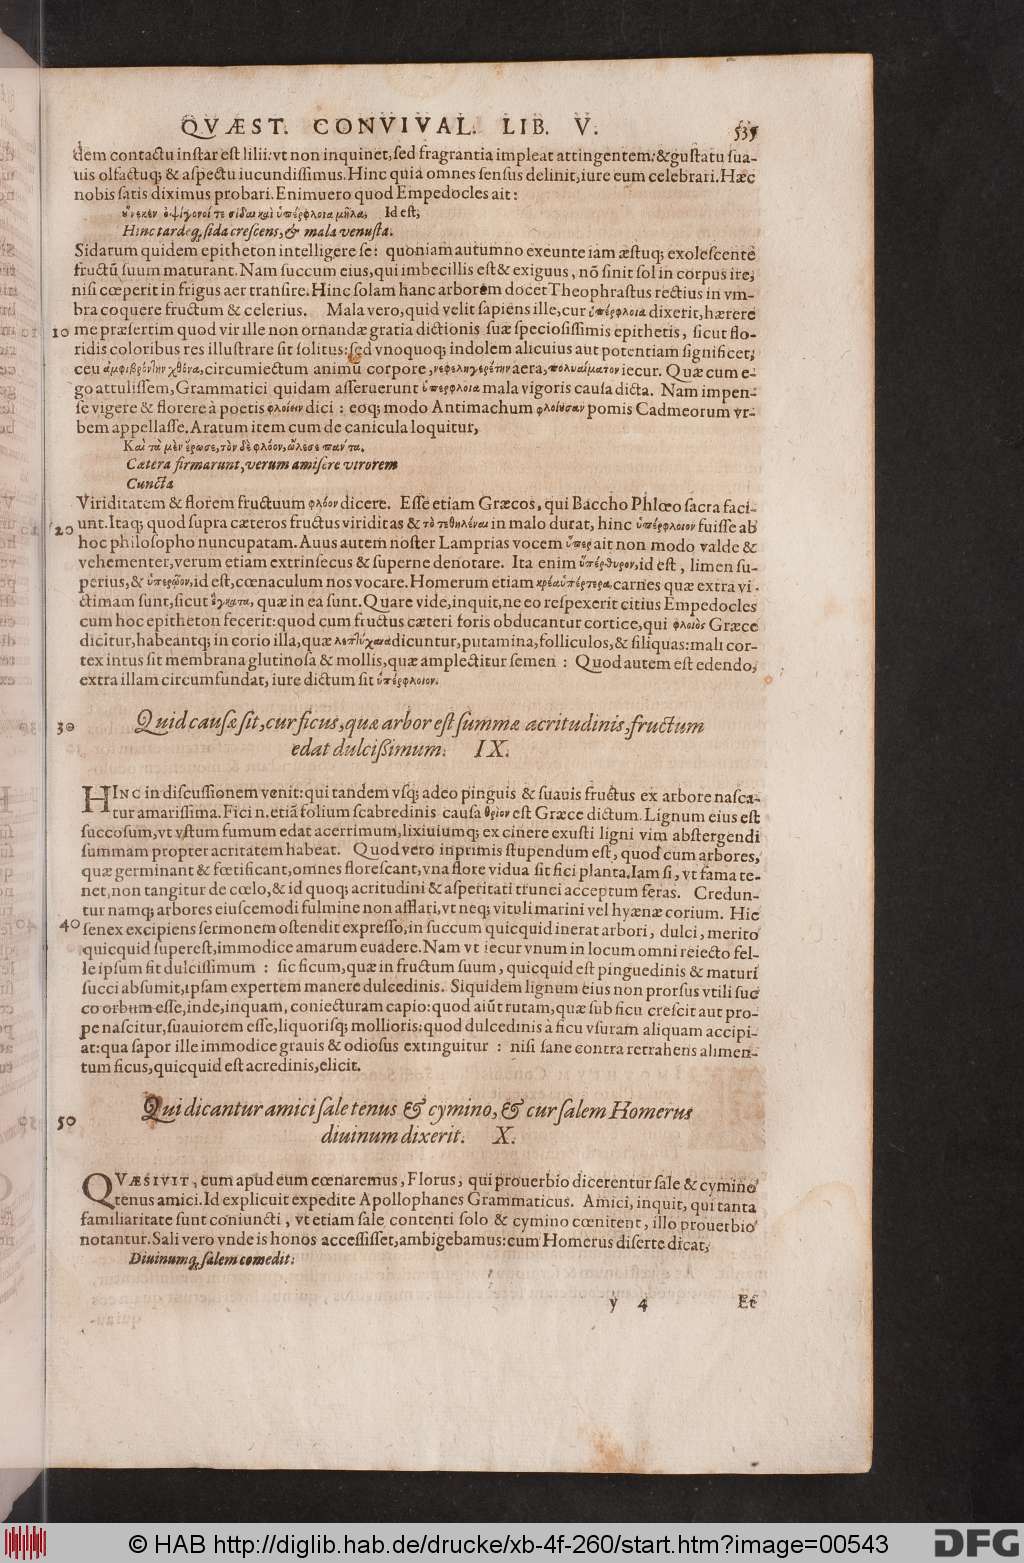 QVÆST. CONVIVAL. LIB. V. 535
dem contactu instar est lilii: vt non inquinet, sed fragrantia impleat attingentem: & gustatu sua-
uis olfactuq; & aspectu iucundissimus. Hinc quia omnes sensus delinit, iure eum celebrari. Hæc
nobis satis diximus probari. Enimuero quod Empedocles ait:
οὕνεκεν ὀψίγονοί τε σίδαι καὶ ὑπέρφλοια μῆλα, Id est,
Hinc tardeq; sida crescens, & mala venusta.
Sidarum quidem epitheton intelligere se: quoniam autumno exeunte iam æstuq; exolescente
fructũ suum maturant. Nam succum eius, qui imbecillis est & exiguus, nõ sinit sol in corpus ire,
nisi cœperit in frigus aer transire. Hinc solam hanc arborem docet Theophrastus rectius in vm-
bra coquere fructum & celerius. Mala vero, quid velit sapiens ille, cur ὑπέρφλοια dixerit, hærere
10 me præsertim quod vir ille non ornandæ gratia dictionis suæ speciosissimis epithetis, sicut flo-
ridis coloribus res illustrare sit solitus: sed vnoquoq; indolem alicuius aut potentiam significet;
ceu ἀμφιβρότην χθόνα, circumiectum animũ corpore, νεφεληγερέτην aera, πολυαίματον iecur. Quæ cum e-
go attulissem, Grammatici quidam asseruerunt ὑπέρφλοια mala vigoris causa dicta. Nam impen-
se vigere & florere à poetis φλοίειν dici: eoq; modo Antimachum φλοίουσαν pomis Cadmeorum vr-
bem appellasse. Aratum item cum de canicula loquitur,
Καὶ τὰ μὲν ἔρωσε, τὸν δὲ φλόον, ὤλεσε παντα.
Cætera firmarunt, verum amisere virorem
Cuncta
Viriditatem & florem fructuum φλόον dicere. Esse etiam Græcos, qui Baccho Phlœo sacra faci-
20 unt. Itaq; quod supra cæteros fructus viriditas & τὸ τεθηλέναι in malo durat, hinc ὑπέρφλοιον fuisse ab
hoc philosopho nuncupatam. Auus autem noster Lamprias vocem ὕπερ ait non modo valde &
vehementer, verum etiam extrinsecus & superne denotare. Ita enim ὑπέρθυρον, id est, limen su-
perius, & ὑπερῷον, id est, cœnaculum nos vocare. Homerum etiam κρέα ὑπέρτερα, carnes quæ extra vi-
ctimam sunt, sicut ἔγκατα, quæ in ea sunt. Quare vide, inquit, ne eo respexerit citius Empedocles
cum hoc epitheton fecerit: quod cum fructus cæteri foris obducantur cortice, qui φλοιὸς Græce
dicitur, habeantq; in corio illa, quæ λεπύχανα dicuntur, putamina, folliculos, & siliquas: mali cor-
tex intus sit membrana glutinosa & mollis, quæ amplectitur semen: Quod autem est edendo,
extra illam circumfundat, iure dictum sit ὑπέρφλοιον.
30 Quid causæ sit, cur ficus, quæ arbor est summæ acritudinis, fructum
edat dulcißimum. IX.
HINC in discussionem venit: qui tandem vsq; adeo pinguis & suauis fructus ex arbore nasca-
tur amarissima. Fici n. etiã folium scabredinis causa θρίον est Græce dictum. Lignum eius est
succosum, vt vstum fumum edat acerrimum, lixiuiumq; ex cinere exusti ligni vim abstergendi
summam propter acritatem habeat. Quod vero inprimis stupendum est, quod cum arbores,
quæ germinant & fœtificant, omnes florescant, vna flore vidua sit fici planta. Iam si, vt fama te-
net, non tangitur de cœlo, & id quoq; acritudini & asperitati trunci acceptum feras. Credun-
tur namq; arbores eiuscemodi fulmine non afflari, vt neq; vituli marini vel hyænæ corium. Hic
40 senex excipiens sermonem ostendit expresso, in succum quicquid inerat arbori, dulci, merito
quicquid superest, immodice amarum euadere. Nam vt iecur vnum in locum omni reiecto fel-
le ipsum sit dulcissimum: sic ficum, quæ in fructum suum, quicquid est pinguedinis & maturi
succi absumit, ipsam expertem manere dulcedinis. Siquidem lignum eius non prorsus vtili suc
co orbum esse, inde, inquam, coniecturam capio: quod aiũt rutam, quæ sub ficu crescit aut pro-
pe nascitur, suauiorem esse, liquorisq; mollioris: quod dulcedinis à ficu vsuram aliquam accipi-
at: qua sapor ille immodice grauis & odiosus extinguitur: nisi sane contra retrahens alimen-
tum ficus, quicquid est acredinis, elicit.
Qui dicantur amici sale tenus & cymino, & cur salem Homerus
50 diuinum dixerit. X.
QVÆSIVIT, cum apud eum cœnaremus, Florus, qui prouerbio dicerentur sale & cymino
tenus amici. Id explicuit expedite Apollophanes Grammaticus. Amici, inquit, qui tanta
familiaritate sunt coniuncti, vt etiam sale contenti solo & cymino cœnitent, illo prouerbio
notantur. Sali vero vnde is honos accessisset, ambigebamus: cum Homerus diserte dicat,
Diuinumq; salem comedit:
y 4 Et
© HAB http://diglib.hab.de/drucke/xb-4f-260/start.htm?image=00543 DFG